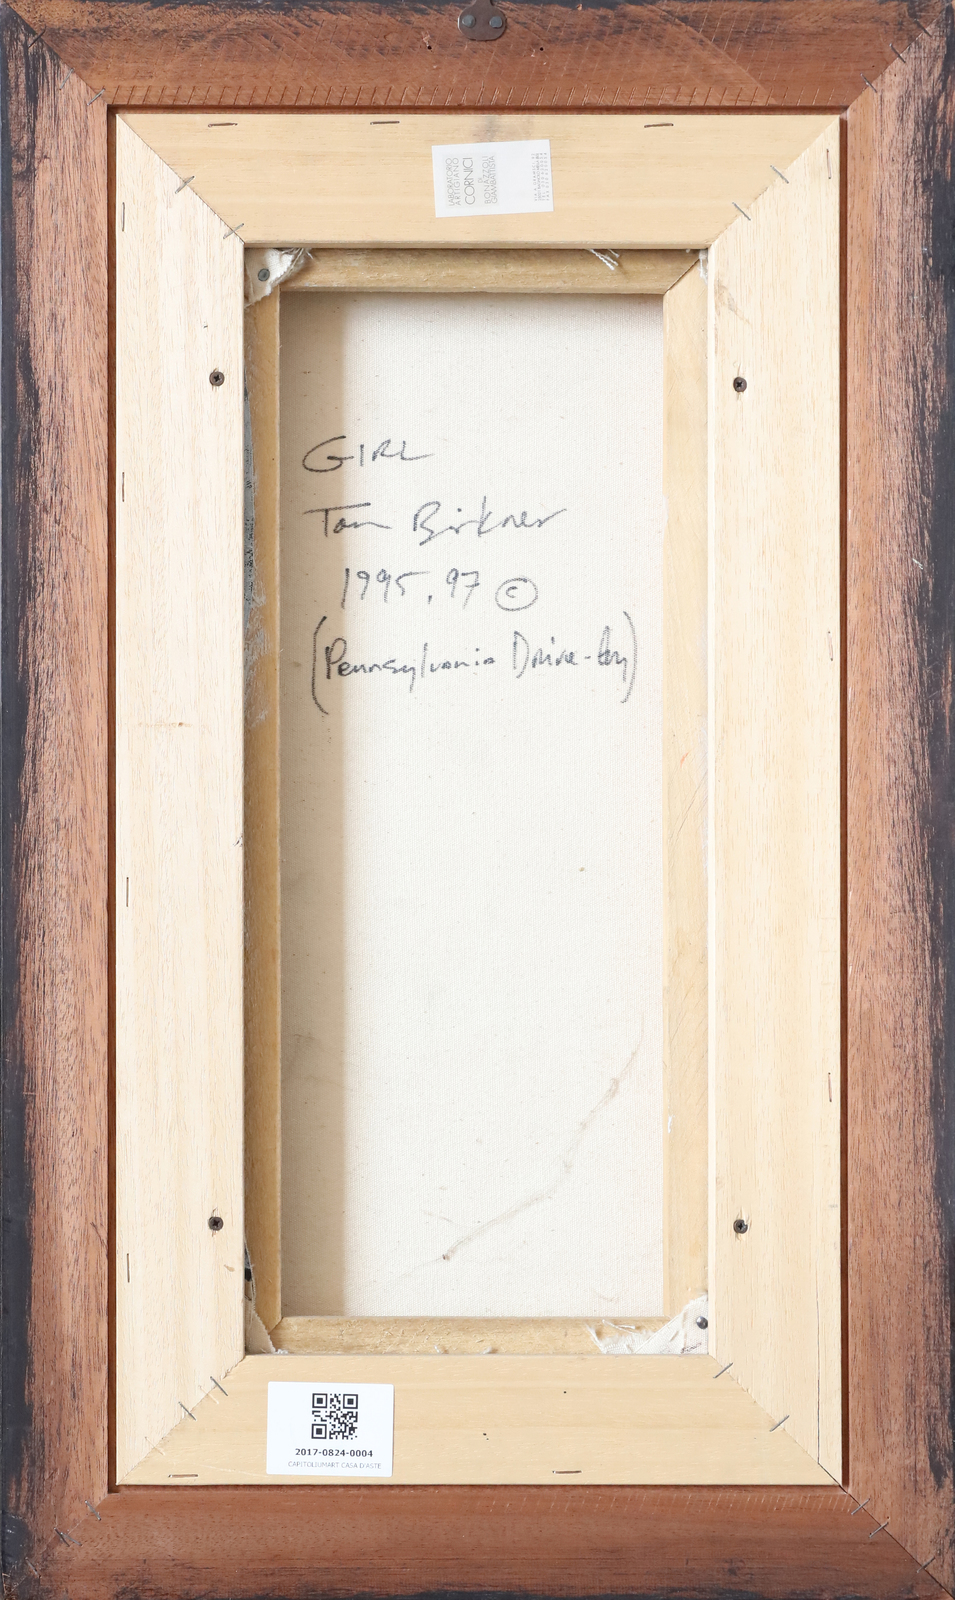 LABORATORIO
ARTIGIANO
CORNICI
DI
BONAZZOLI
GIAMBATTISTA
GIRL
Tom Birkner
1995, 97 ©
(Pennsylvania Drive-by)
2017-0824-0004
CAPITOLIUMART CASA D'ASTE